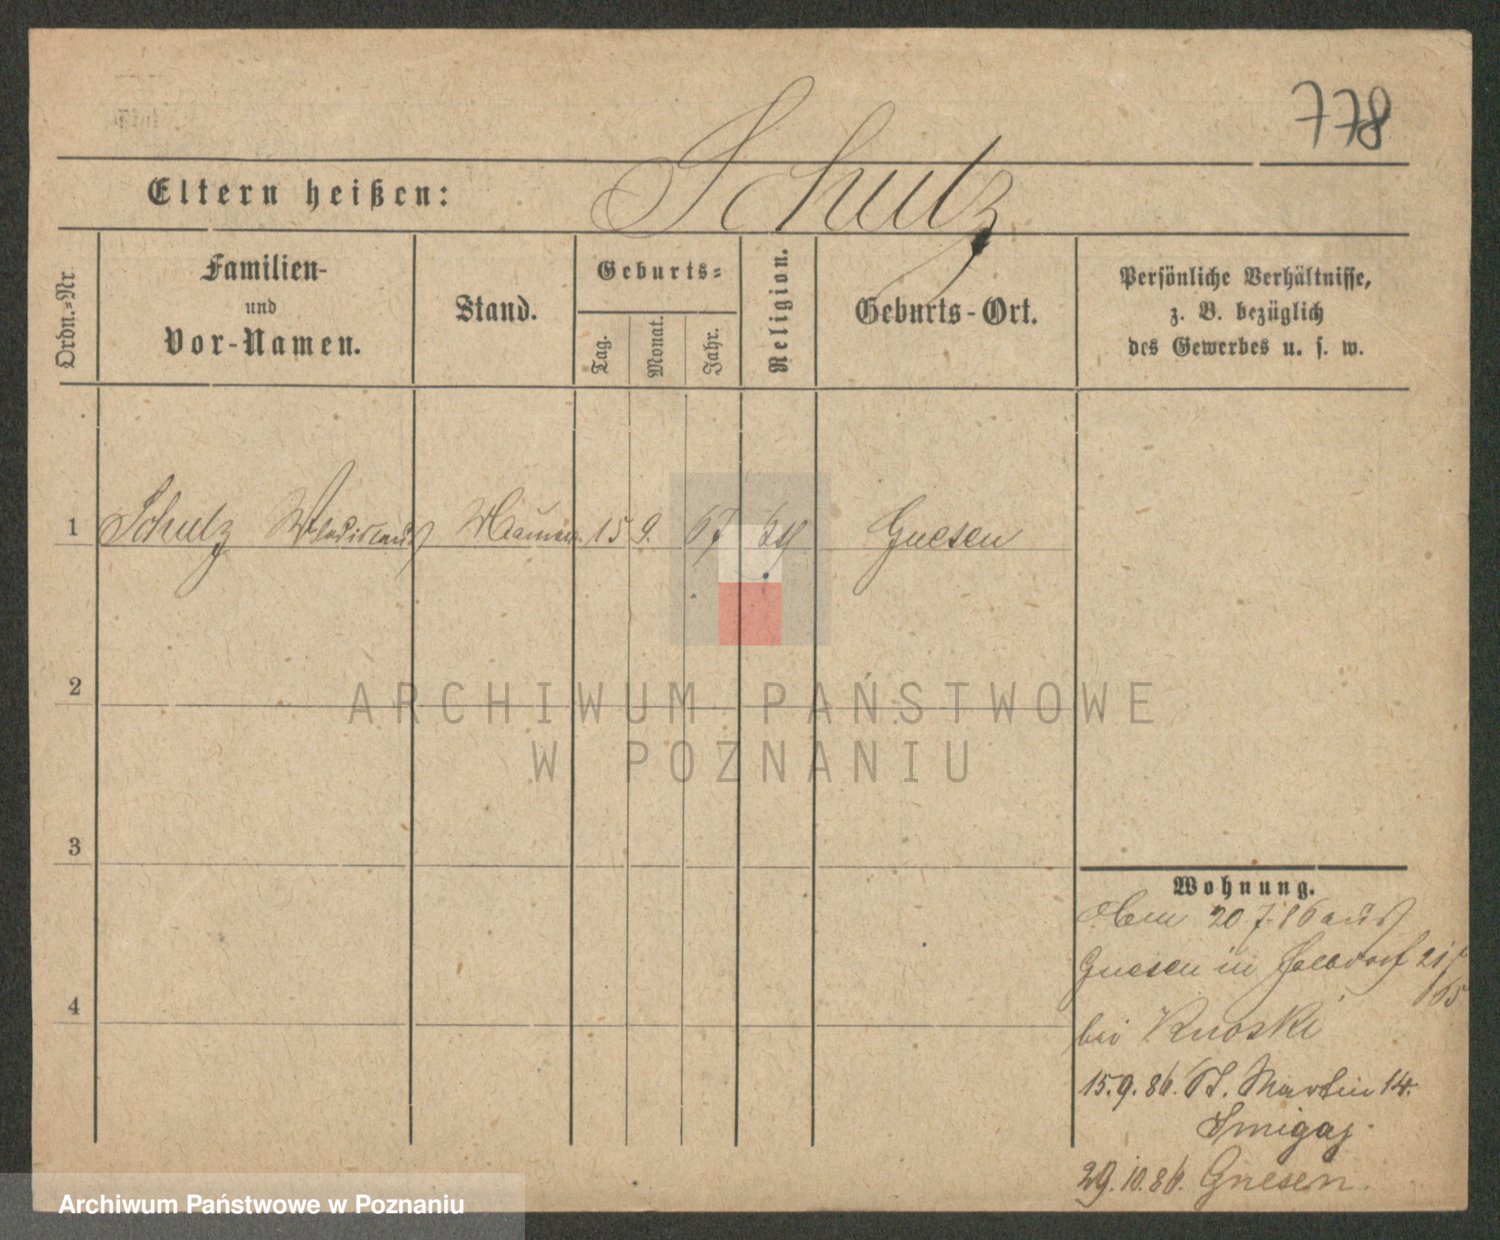 778
Schulz
Eltern heißen:
Ordn.=Nr.
Familien-
und
Vor-Namen.
Stand.
Geburts=
Tag.
Monat.
Jahr.
Religion.
Geburts-Ort.
Persönliche Verhältnisse,
z. B. bezüglich
des Gewerbes u. s. w.
1 Schulz Wladislaus 15 9. 67 Gnesen
2
3
4
Wohnung.
20 7. 86 aus
Gnesen in 21/
bei Knoski
15.9.86. St. Martin 14.
Smigaj.
29.10.86. Gnesen.
ARCHIWUM PAŃSTWOWE
W POZNANIU
Archiwum Państwowe w Poznaniu